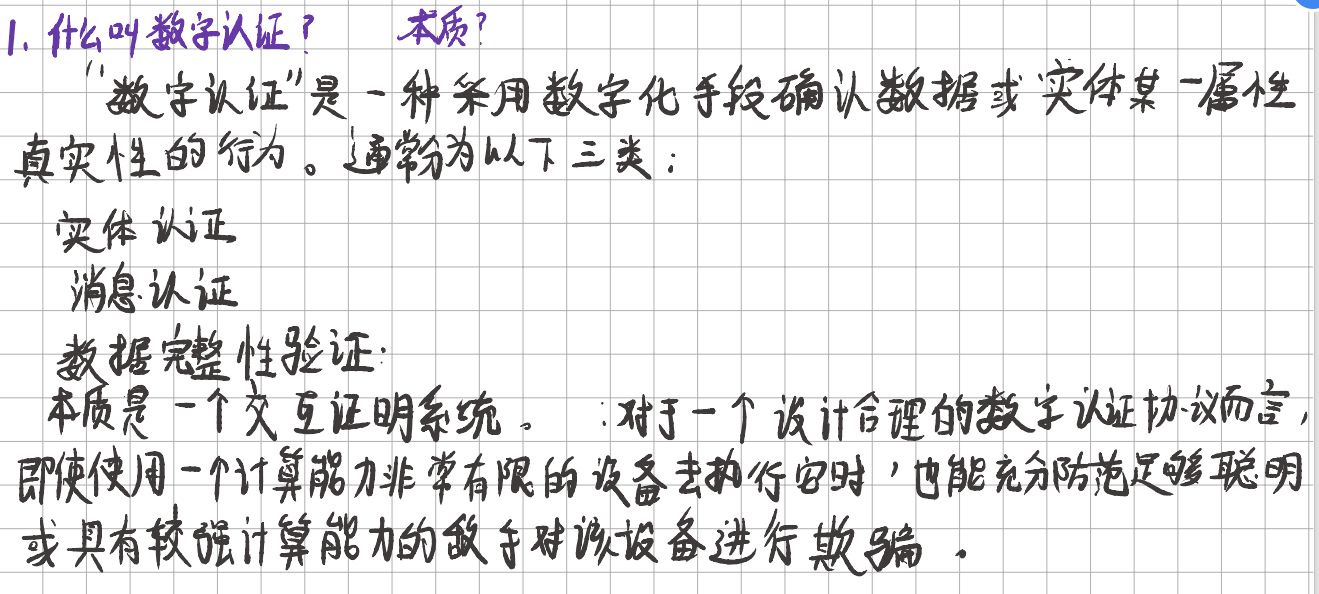 1. 什么叫数字认证？ 本质？
“数字认证”是一种采用数字化手段确认数据或实体某一属性
真实性的行为。通常分为以下三类：
实体认证
消息认证
数据完整性验证：
本质是一个交互证明系统。 ：对于一个设计合理的数字认证协议而言，
即使使用一个计算能力非常有限的设备去执行它时，也能充分防范足够聪明
或具有较强计算能力的敌手对该设备进行欺骗．